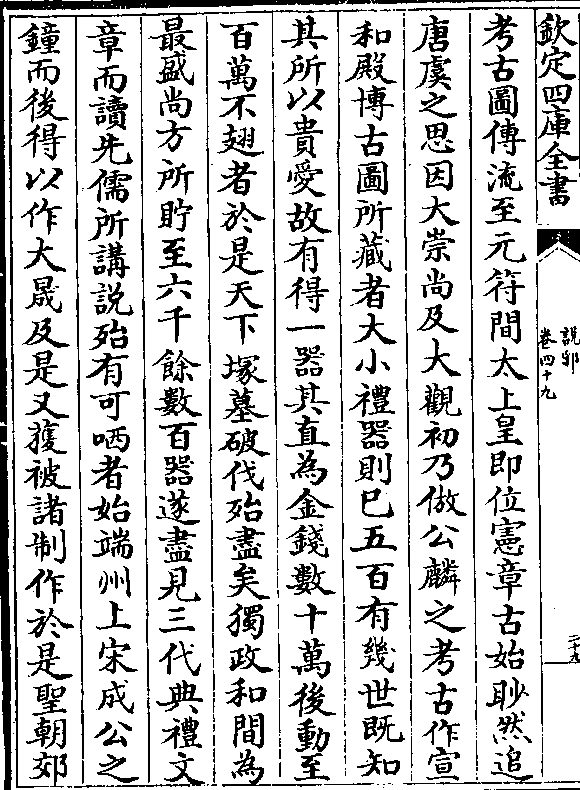 欽定四庫全書
說郛
卷四十九
二十九
考古圖傳流至元符間太上皇即位憲章古始眇然追
唐虞之思因大崇尚及大觀初乃倣公麟之考古作宣
和殿博古圖所藏者大小禮器則已五百有幾世既知
其所以貴愛故有得一器其直為金錢數十萬後動至
百萬不翅者於是天下塚墓破伐殆盡矣獨政和間為
最盛尚方所貯至六千餘數百器遂盡見三代典禮文
章而讀先儒所講說殆有可哂者始端州上宋成公之
鐘而後得以作大晟及是又獲被諸制作於是聖朝郊